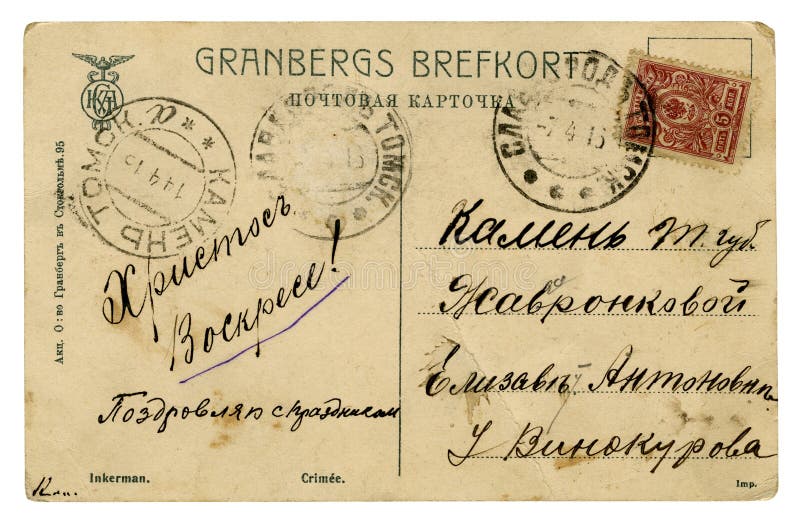 GRANBERGS BREFKORT
ПОЧТОВАЯ КАРТОЧКА
КАМЕНЬ ТОМСК.
14 4 15
ТОМСК
СЛАВГОРОДЪ ТОМСК
-7 4 15
5
Акц. О:во Гранбергъ въ Стокгольмѣ. 95
Христосъ
Воскресе!
Поздровляю с праздником
Камень Т. губ.
Жавронковой
Елизавѣ. Антоновнѣ
У Винокурова
Inkerman.
Crimée.
Imp.